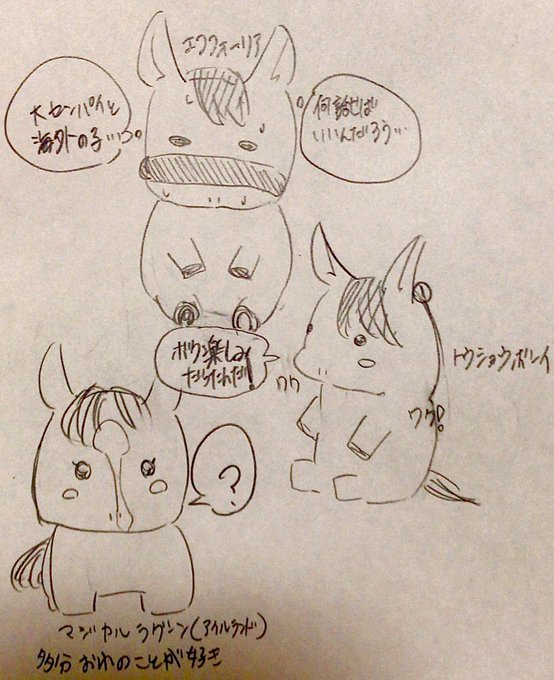 エフフォーリア
大センパイと
海外の子…
何話せば
いいんだろう…
ボク楽しみ
ワク
ワク!
トウショウボーイ
?
マジカルラグーン(アイルランド)
多分おれのことが好き